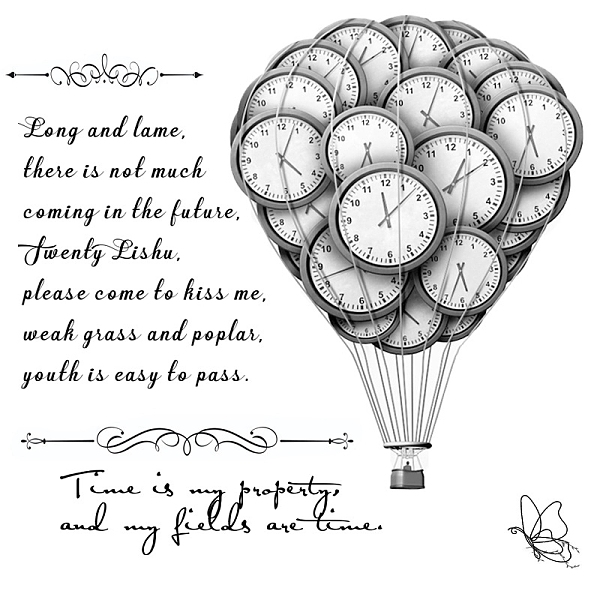 Long and lame,
there is not much
coming in the future,
Twenty Lishu,
please come to kiss me,
weak grass and poplar,
youth is easy to pass.
Time is my property,
and my fields are time.